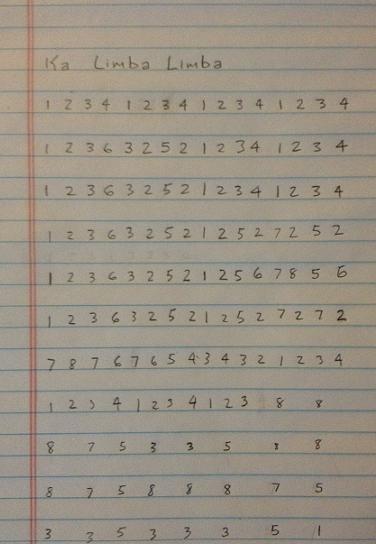 Ka Limba Limba
1 2 3 4 1 2 3 4 1 2 3 4 1 2 3 4
1 2 3 6 3 2 5 2 1 2 3 4 1 2 3 4
1 2 3 6 3 2 5 2 1 2 3 4 1 2 3 4
1 2 3 6 3 2 5 2 1 2 5 2 7 2 5 2
1 2 3 6 3 2 5 2 1 2 5 6 7 8 5 6
1 2 3 6 3 2 5 2 1 2 5 2 7 2 7 2
7 8 7 6 7 6 5 4 3 4 3 2 1 2 3 4
1 2 3 4 1 2 3 4 1 2 3 8 8
8 7 5 3 3 5 8 8
8 7 5 8 8 8 7 5
3 3 5 3 3 3 5 1